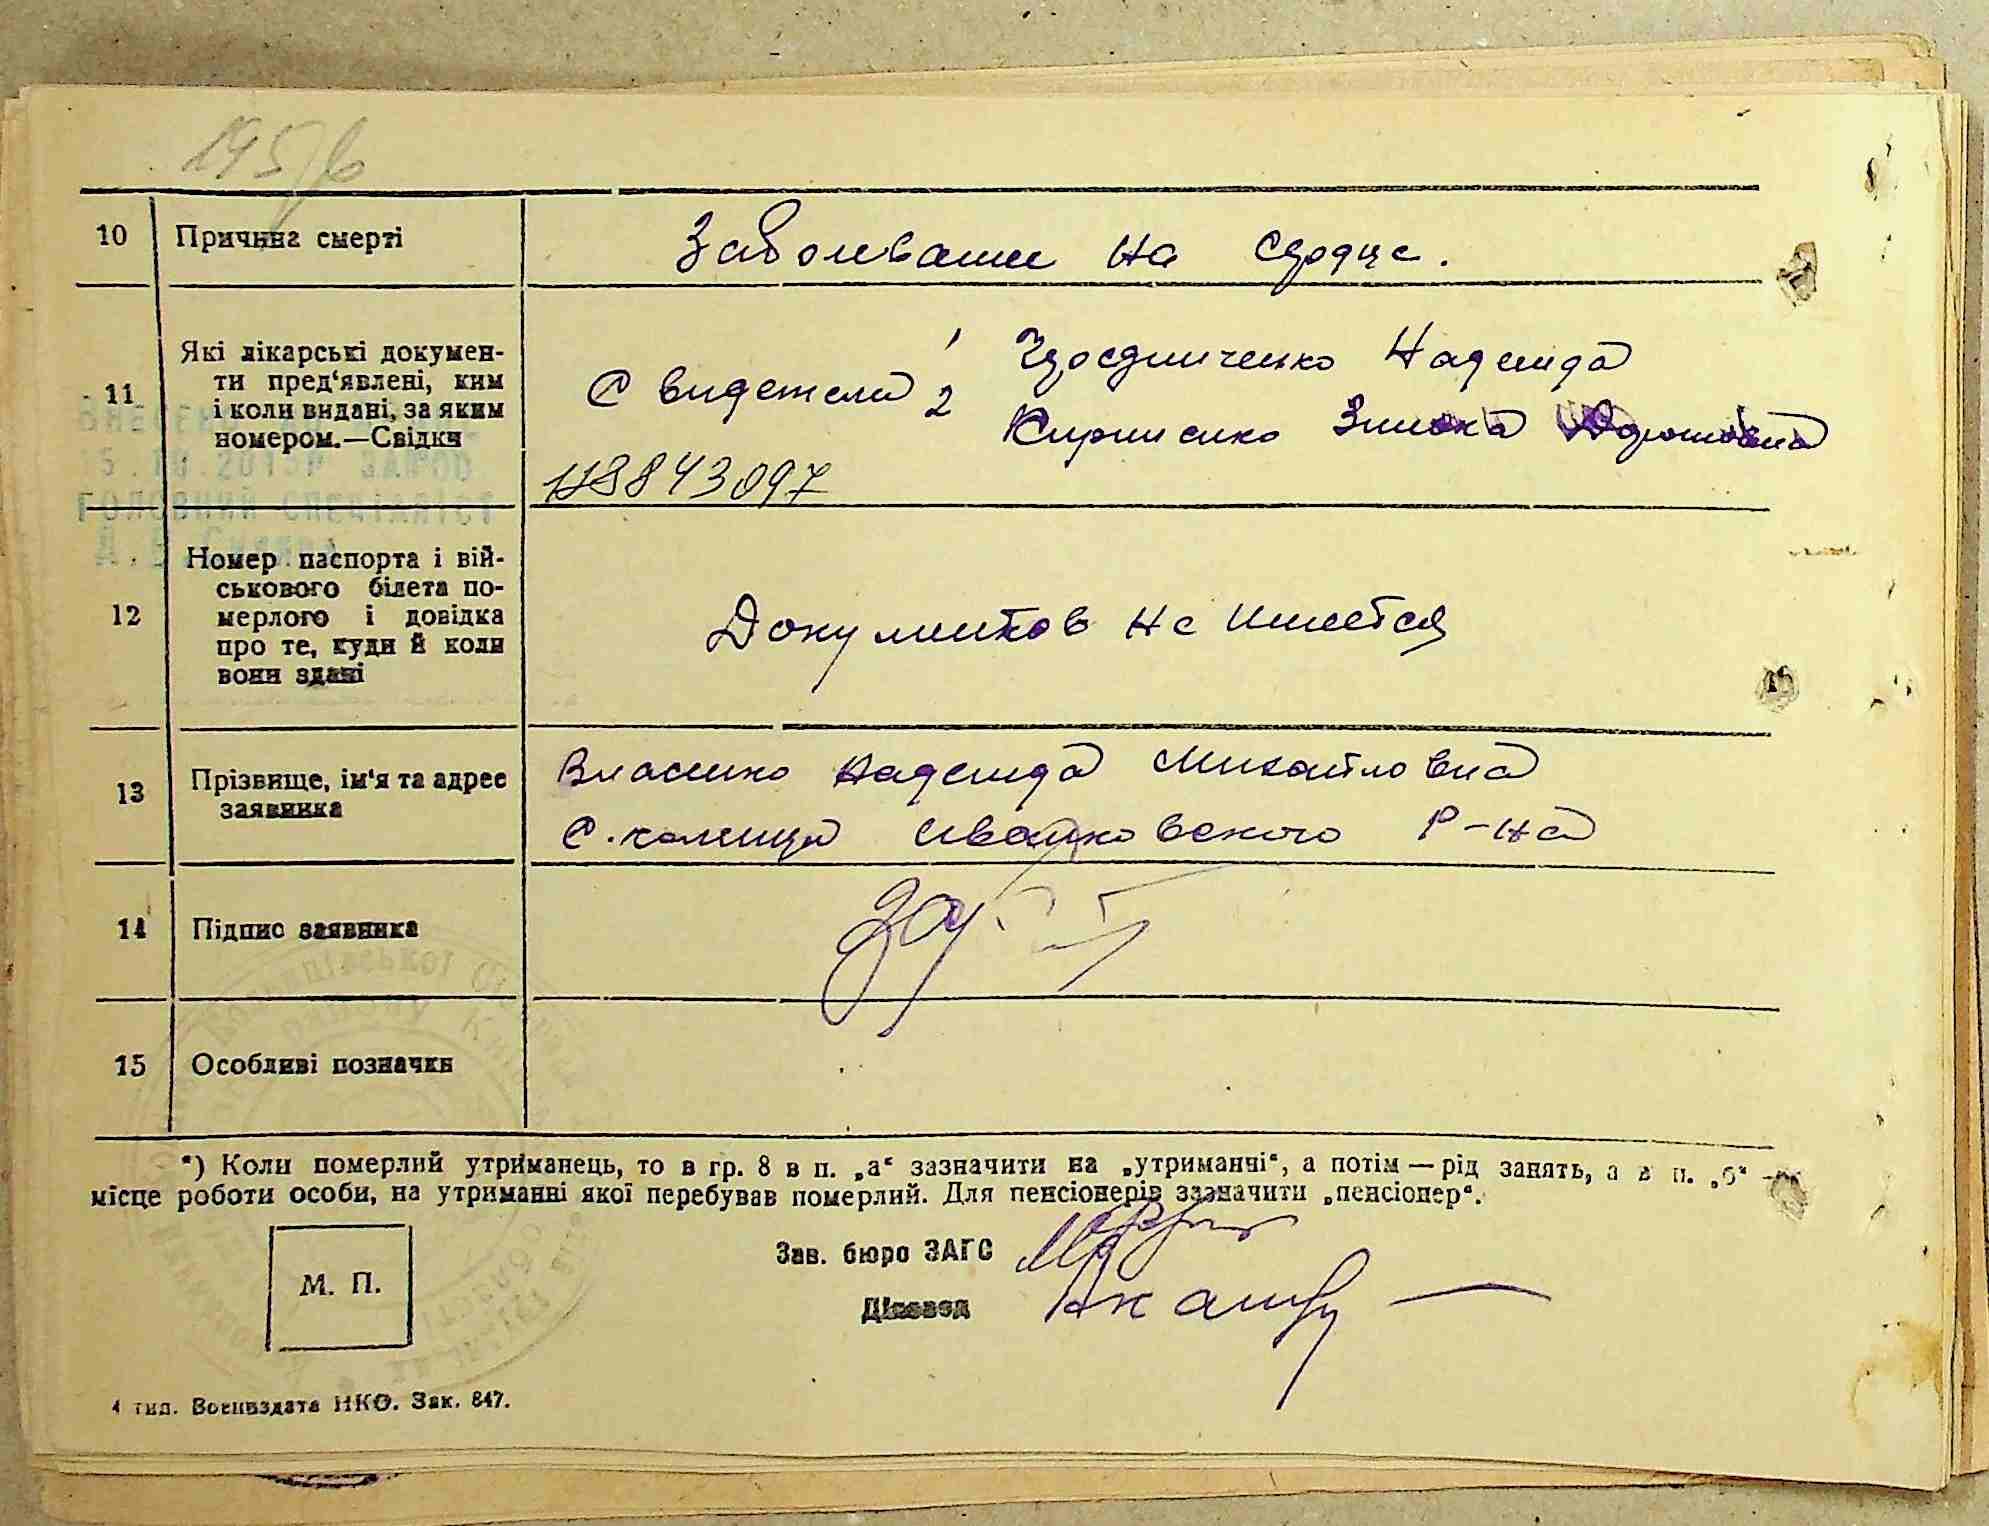 10 Причина смерті
Заболевание на сердце.
11 Які лікарські докумен-
ти пред'явлені, ким
і коли видані, за яким
номером.—Свідки
Свидетели 1 Надежда
2 Кириенко
8843097
12 Номер паспорта і вій-
ськового білета по-
мерлого і довідка
про те, куди й коли
вони здані
Документов не имеется
13 Прізвище, ім'я та адрес
заявника
Власенко Надежда Михайловна
С. Иванковского р-на
14 Підпис заявника
15 Особливі позначки
*) Коли померлий утриманець, то в гр. 8 в п. „а“ зазначити на „утриманчі“, а потім — рід занять, а в п. „б“ —
місце роботи особи, на утриманні якої перебував померлий. Для пенсіонерів зазначити „пенсіонер“.
Зав. бюро ЗАГС
М. П.
Діловод
4 тип. Воениздата НКО. Зак. 847.